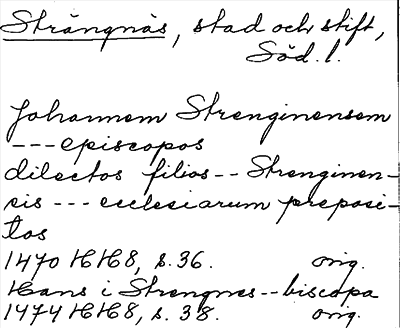 Strängnäs, stad och stift,
Söd. l.
Johannem Strenginensem
--- episcopos
dilectos filios -- Strenginen-
sis --- ecclesiarum preposi-
tos
1470 HH8, s. 36. orig.
Hans i Strengnes -- biscopa
1474 HH8, s. 38. orig.